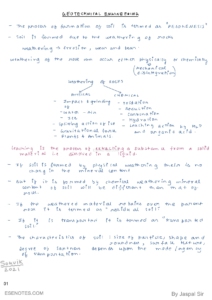 GEOTECHNICAL ENGINEERING
- The process of formation of soil is termed as "PEDOGENESIS"
- Soil is formed due to the weathering of rocks
weathering → erosion, wear and tear
weathering of the rock can occur either physically or chemically
(mechanical)
weathering of rocks
PHYSICAL
CHEMICAL
- Impact & grinding
of
- water - ice
- air
- splitting action of ice
- Gravitational force
- Plants & animals
- oxidation
- Reduction
- Carbonation
- Hydration
- by water
and organic acid
Leaching is the process of extracting a substance from a solid
material i.e. dissolve in a liquid.
- If soil is formed by physical weathering there is no
change in the mineral content
- But if it is formed by chemical weathering mineral
content of soil will be different than that of
rock.
- If the weathered material retains over the parent
rock it is termed as "residual soil"
- If it is transported it is termed as "transported
soil"
- The characteristics of soil: size of particles, shape and
roundness, surface texture,
degree of depends upon the mode/agency
of transportation.
2021
01
ESENOTES.COM
By Jaspal Sir